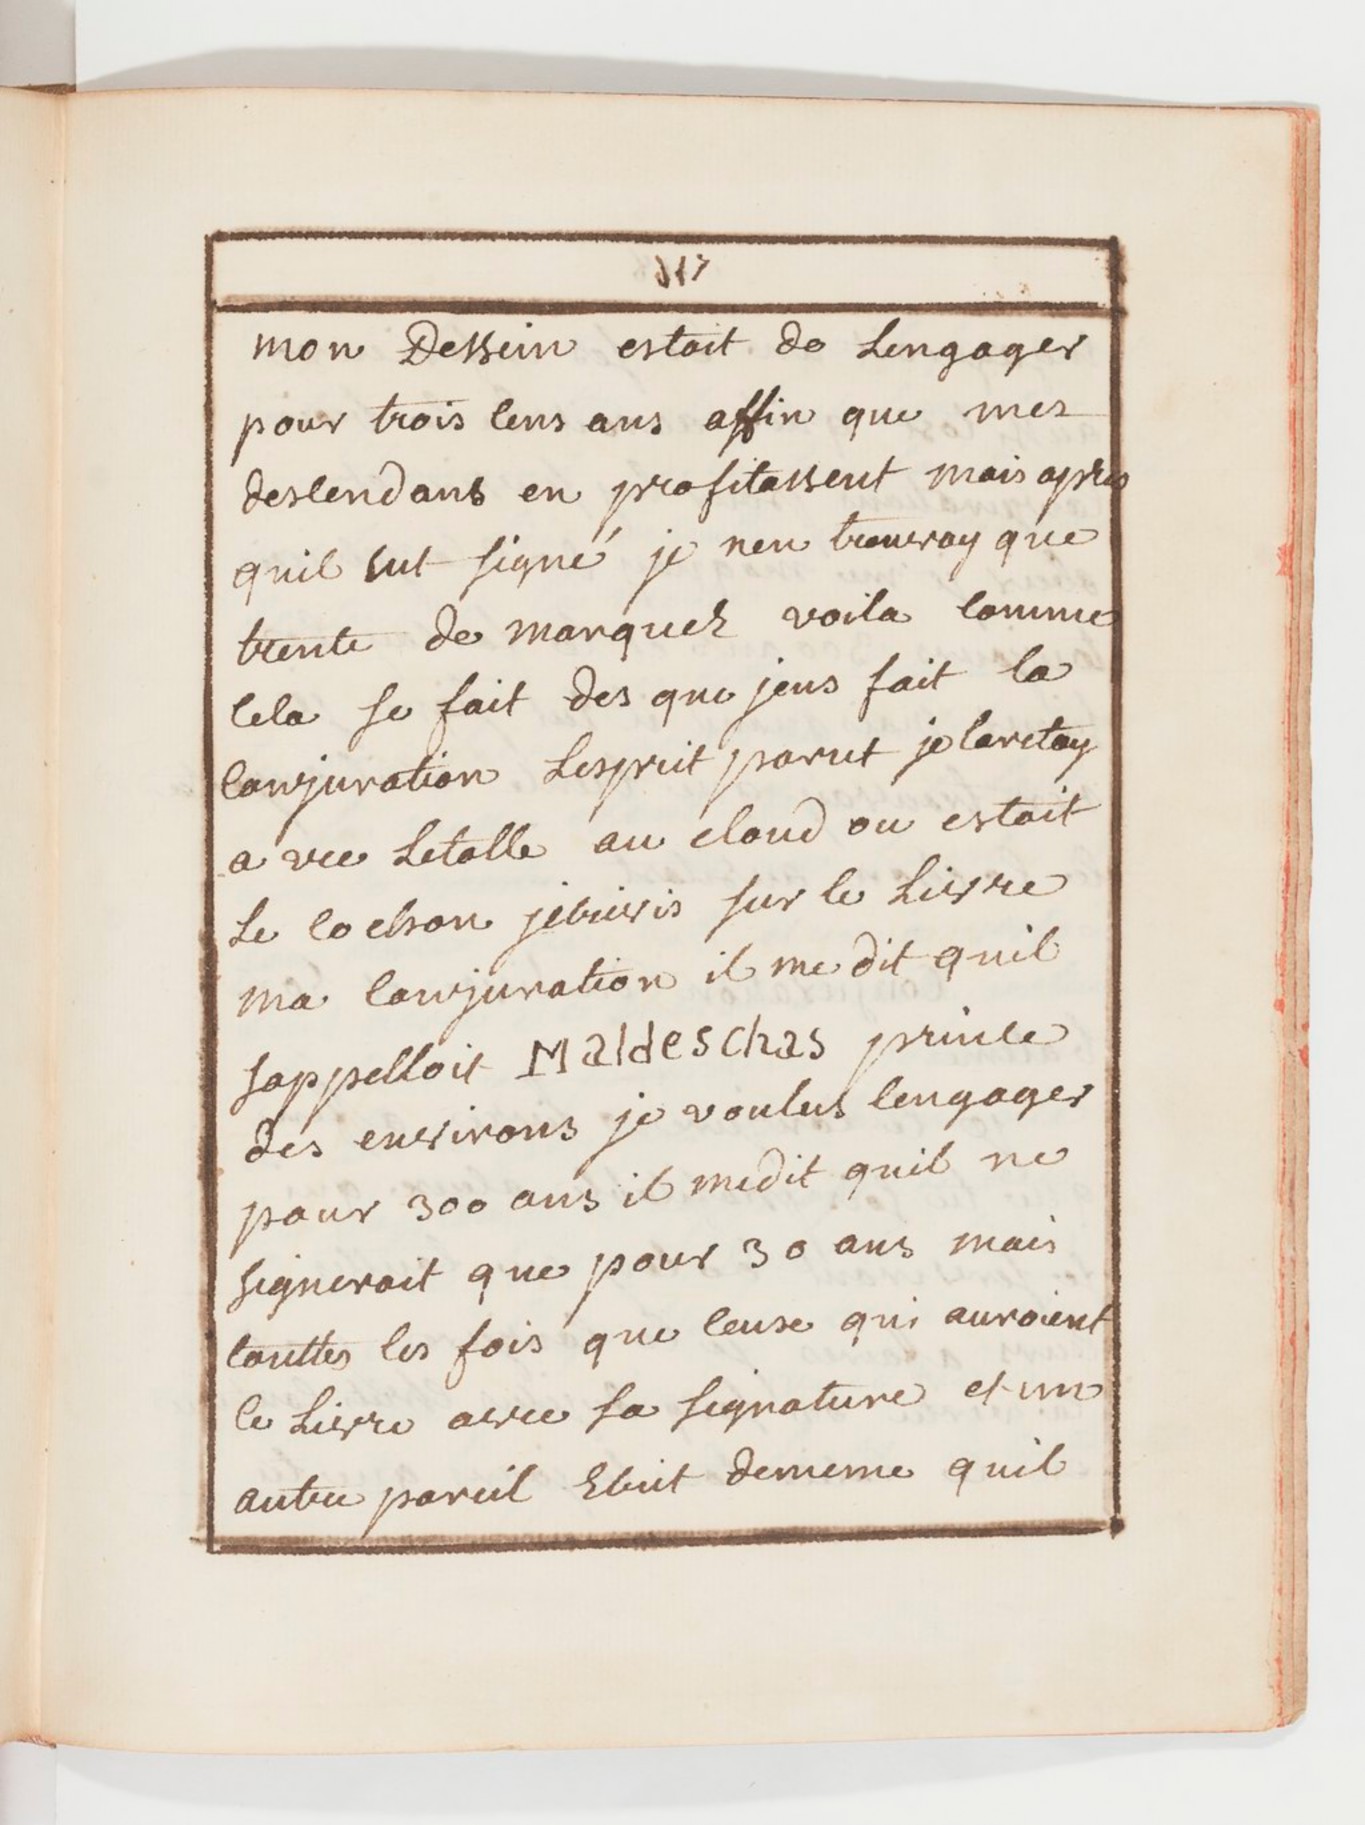 117
mon Dessein estoit de Lengager
pour trois cens ans affin que mes
descendans en profitassent mais apres
quil eut signé je nen trouvay que
trente de marquez voila comme
cela se fait des que jeus fait la
conjuration Lesprit parut je laretay
a vec Letolle au cloud ou estoit
Le cochon jecrivis sur le Livre
ma conjuration il me dit quil
sappelloit Maldeschas prince
des environs je voulus lengager
pour 300 ans il medit quil ne
signeroit que pour 30 ans mais
touttes les fois que ceuse qui auroient
le Livre avec sa signature et un
autre pareil Ecrit dememe quil